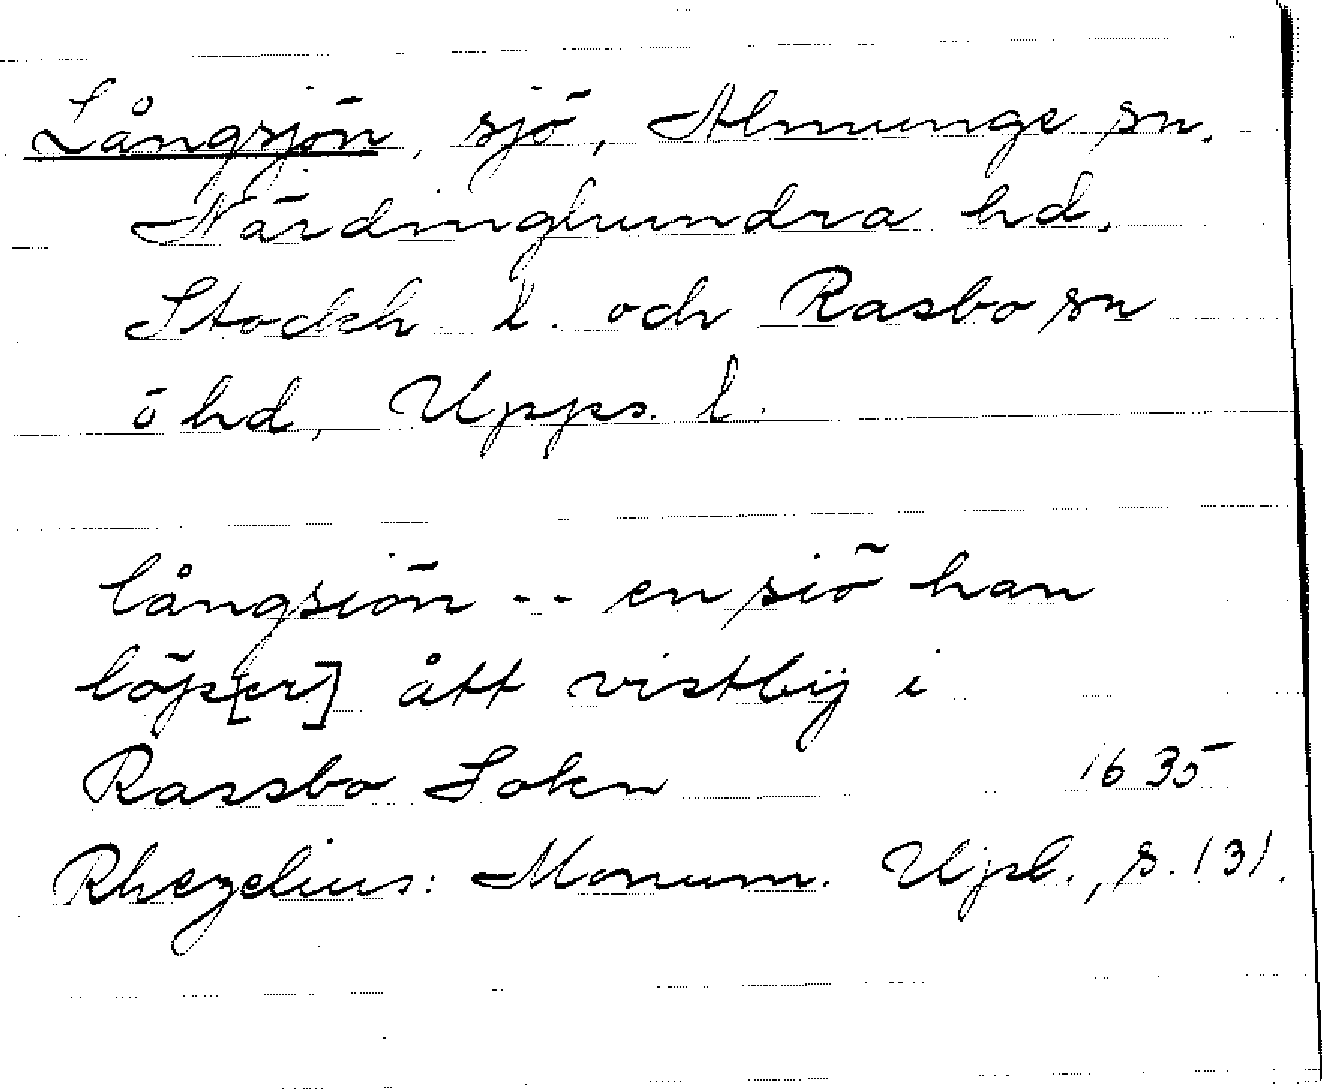 Långsjön, sjö, Almunge sn.
Närdinghundra hd.
Stockh l. och Rasbo sn
o hd, Upps. l.
långsiön -- en siö han
löp[er] ått vistbÿ i
Rassbo Sokn 1635
Rhezelius: Monum. Upl., s. 131.